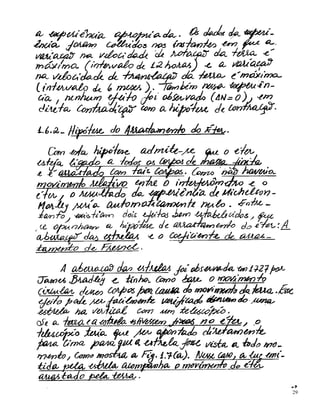 a experiência apropriada. Os dados da experi-
ência foram colhidos nos instantes em que a
variação na velocidade de rotação da terra é
máxima (intervalo de 12 horas) e a variação
na velocidade de translação da terra é máxima
(intervalo de 6 meses). Também nessa experiên-
cia, nenhum efeito foi observado (ΔN=0), em
direta contradição com a hipótese de contração.
1.6.2- Hipótese do Arrastamento do Éter.
Com esta hipótese admite-se que o éter,
esteja ligado a todos os corpos de massa finita
e é arrastado com tais corpos. Como não haveria
movimento relativo entre o interferômetro e o
éter, o resultado da experiência de Michelson-
Morley seria automaticamente nulo. Entre-
tanto, existiam dois efeitos bem estabelecidos, que
se opunham a hipótese de arrastamento do éter: A
aberração das estrelas e o coeficiente de arras-
tamento de Fresnel.
A aberração das estrelas foi observada em 1727 por
James Bradley e tinha como base o movimento
circular desses corpos por causa do movimento da terra. Esse
efeito pode ser facilmente verificado uma
estrela na vertical com um telescópio.
Se a terra e a estrela estivessem fixas no éter, o
telescópio teria que ser apontado diretamente
para cima para que a estrela fosse vista a todo mo-
mento, como mostra a Fig. 1.7(a). Nesse caso, a luz emi-
tida pela estrela acompanha o movimento do éter
arrastado pela terra.
29